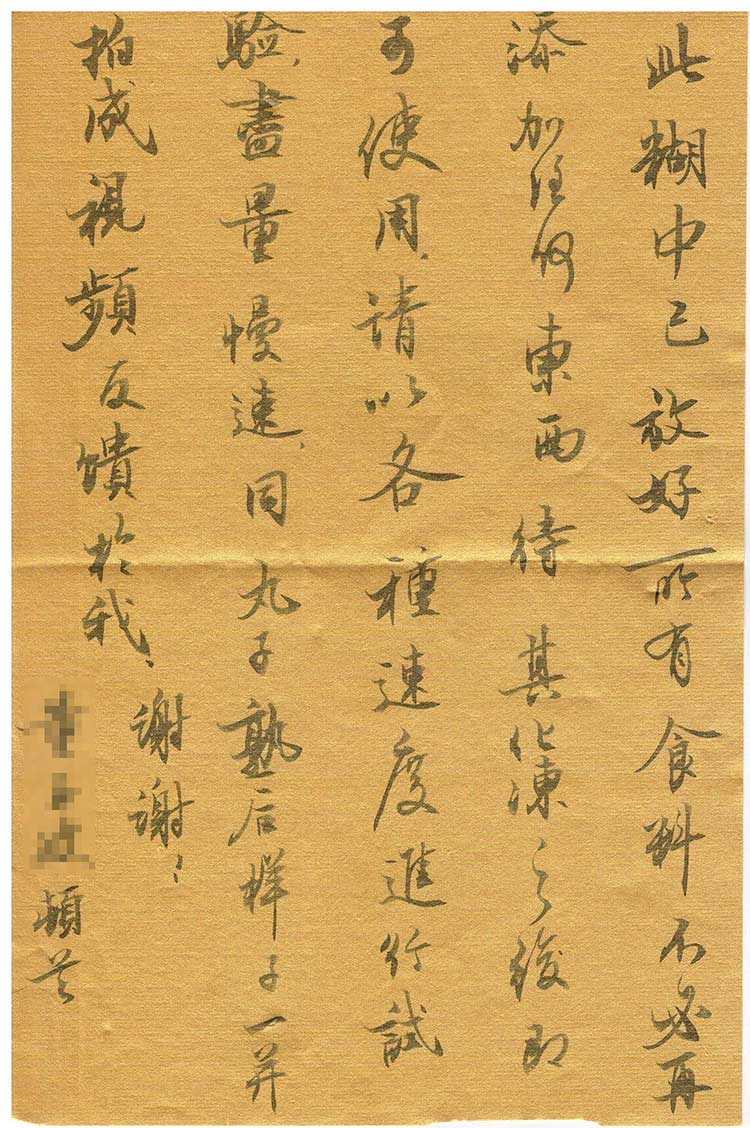 此糊中已放好所有食料不必再
添加任何東西待其化凍之後即
可使用、请以各種速度進行試
驗、盡量慢速、同丸子熟后樣子一并
拍成視頻反饋於我、謝謝！
頓首